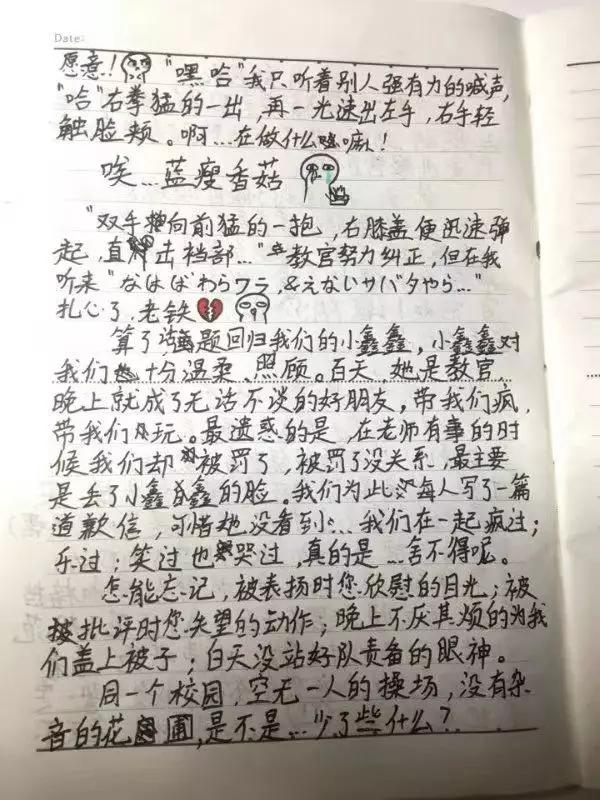 Date:
愿意！"嘿哈"我只听着别人强有力的喊声,
"哈"右拳猛的一出，再一光速出左手，右手轻
触脸颊。啊…在做什么嘛！
唉…蓝瘦香菇
"双手向前猛的一抱，右膝盖便迅速弹
起，直击裆部…"教官努力纠正，但在我
听来"なはばわらワラ,&えないサバタやら…"
扎心了，老铁
算了话题回归我们的小鑫鑫，小鑫鑫对
我们十分温柔、照顾。百天，她是教官，
晚上就成了无话不谈的好朋友，带我们疯，
带我们玩。最遗惑的是，在老师有事的时
候我们却被罚了，被罚了没关系，最主要
是丢了小鑫鑫的脸。我们为此每人写了一篇
道歉信，可惜她没看到…我们在一起疯过；
乐过；笑过也哭过，真的是…舍不得呢。
怎能忘记，被表扬时您欣慰的目光；被
批评时您失望的动作；晚上不厌其烦的为我
们盖上被子；白天没站好队责备的眼神。
同一个校园，空无一人的操场，没有杂
音的花圃,是不是…少了些什么？